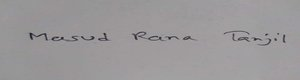 Masud Rana Tanjil